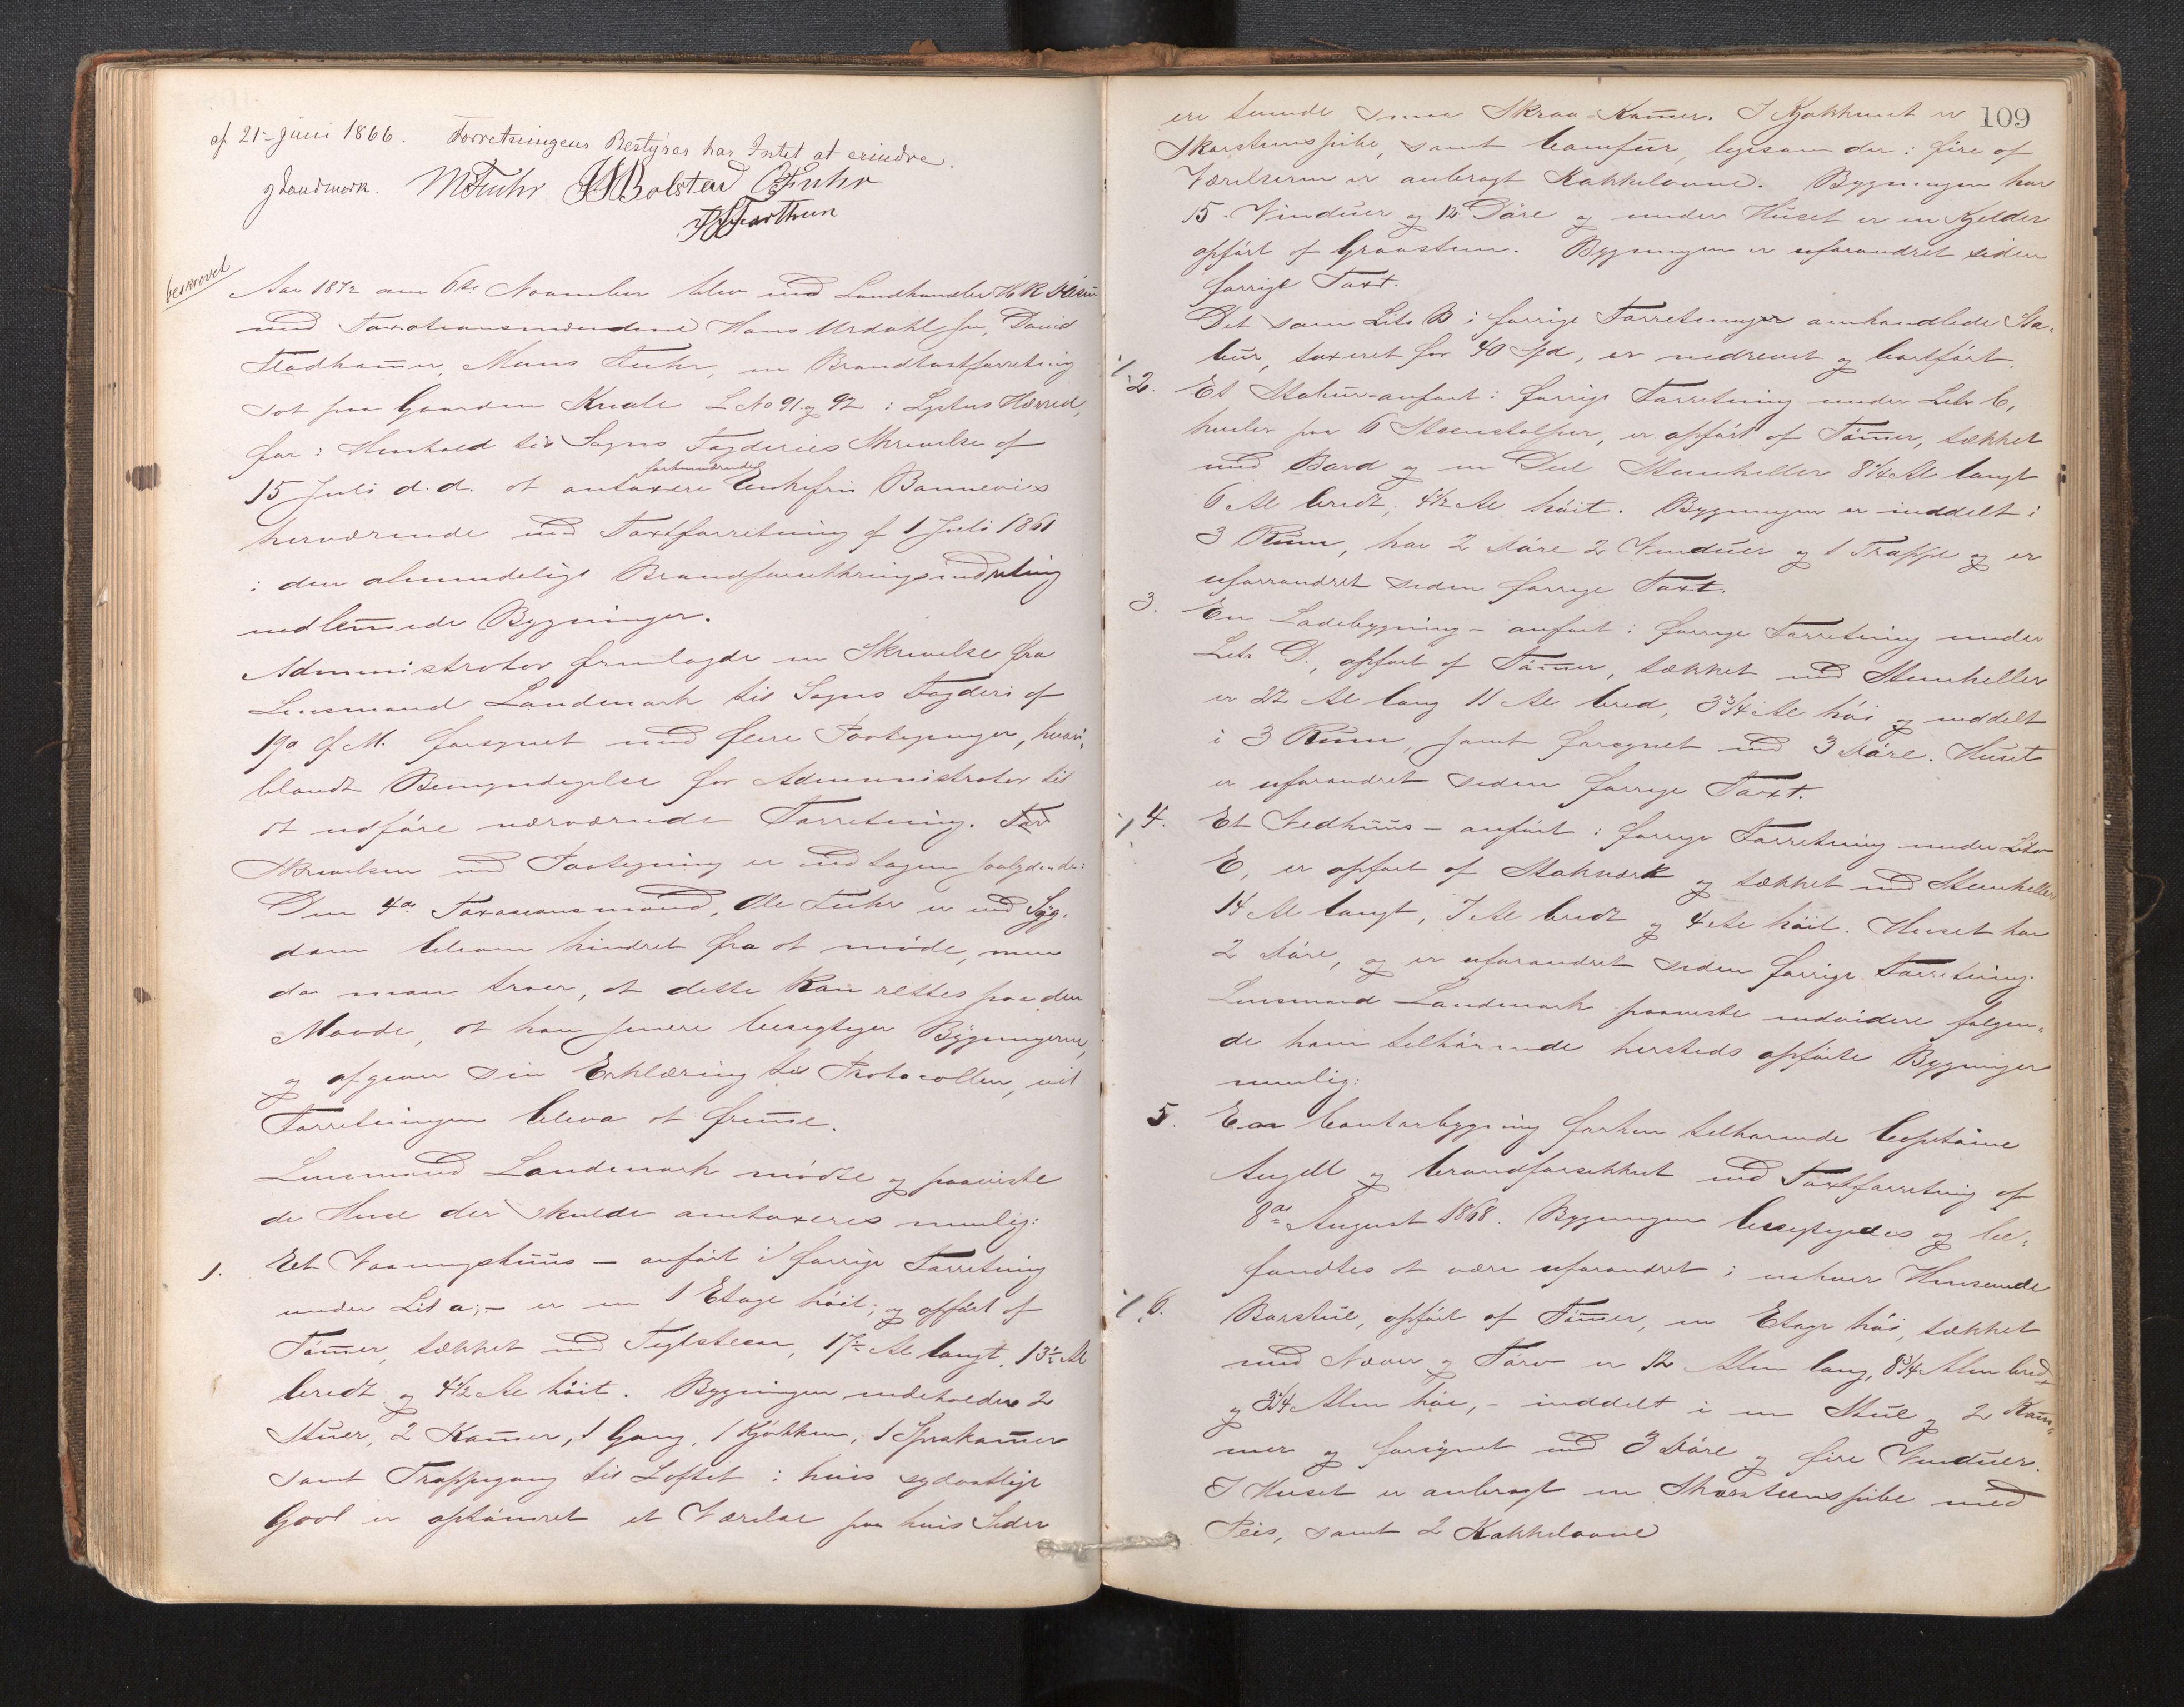 af 21de Juni 1866. Forretningens Bestyrer har Intet at erindre.
g Landmark. M Fuhr Bolstad O Fuhr
Farthun
besørget
Aar 1872 am 6te November blev med Landhandler H R
med Taxationsmændene Hans Urdahl jn, David
Fladhamer, Mons Fuhr, en Brandtaxtforretning
sat paa Gaarden Kvale L No 91 og 92 i Lysters Herred,
for i Henhold til Sogns Fogderies Skrivelse af
15 Juli d.d. at antaxere forhenværende Enkefru Bonnevies
herværende ved Taxtforretning af 1 Juli 1861
i den almindelige Brandforsikkringsindretning
indlem̄ede Bygninger.
Administrator fremlagde en Skrivelse fra
Lensmand Landmark til Sogns Fogderi af
19de f. M. forsynet med flere Paategninger, hvori,
blandt Bemyndigelse for Administrator til
at udføre nærværende Forretning.
Skrivelsen med Paategning er saalydende:
Den 4de Taxasionsmand, Ole Fuhr er ved Syg,
dom bleven hindret fra at møde, men
da man troer, at dette kan rettes paa den
Maade, at han senere besigtiger Bygningerne,
og afgiver sin Erklæring til Protocollen, vil
Forretningen blive at frem̄e.
Lensmand Landmark mødte og paaviste
de Huse der skulde omtaxeres nemlig:
1. Et Vaaningshuus – anført i forrige Forretning
under Lit a; – er en 1 Etage høit, og opført af
Tøm̄er, tækket med Teglsteen, 17½ Al langt, 13½ Al
bredt og 4½ Al høit. Bygningen indeholder 2
Stuer, 2 Kam̄er, 1 Gang, 1 Kjøkken, 1 Spisekam̄er
samt Trappegang til Loftet i hvis sydøstlige
Gavl er optømret et Værelse paa hvis Sider
109
ere tvende smaa Skraa-Kam̄er. I Kjøkkenet er
Skorsteenspibe, samt Comfur, ligesom der i fire af
Værelserne er anbragt Kakkelovne. Bygningen har
15 Vinduer og 12 Døre og under Huset er en Kjelder
opført af Graasteen. Bygningen er uforandret siden
forrige Taxt.
Det som Litr B i forrige Forretninger omhandlede Sta,
bur, taxeret for 40 Spd, er nedrevet og bortført.
2. Et Stabur – anført i forrige Forretning under Litr C,
hviler paa 6 Steenstolper, er opført af Tøm̄er, tækket
med Bord og en Deel Steenheller 8¼ Al langt
6 Al bredt, 4½ Al høit. Bygningen er inddelt i
3 Rum, har 2 Døre 2 Vinduer og 1 Trappe og er
uforandret siden forrige Taxt.
3. En Ladebygning – anført i forrige Forretning under
Litr D., opført af Tøm̄er, tækket med Steenheller
er 22 Al lang 11 Al bred, 3¾ Al høi og inddelt
i 3 Rum, samt forsynet med 3 Døre. Huset
er uforandret siden forrige Taxt.
4. Et Vedhuus – anført i forrige Forretning under Litr
E, er opført af Stakværk og tækket med Steenheller
14 Al langt, 7 Al bredt og 4 Al høit. Huset har
2 Døre, og er uforandret siden forrige Forretning.
Lensmand Landmark paaviste endvidere følgen,
de ham tilhørende hersteds opførte Bygninger
nemlig:
5. En Contorbygning forhen tilhørende Capitaine
Angell og brandforsikkret ved Taxtforretning af
8de August 1868. Bygningen besigtigedes og be,
fandtes at være uforandret i enhver Henseende
6. Borstue, opført af Tøm̄er, en Etage høi, tækket
med Næver og Torv er 12 Alen lang, 8¾ Alen bred
og 3¼ Alen høi, – inddelt i en Stue og 2 Kam̄,
mer og forsynet med 3 Døre og fire Vinduer.
I Huset er anbragt en Skorsteenspibe med
Peis, samt 2 Kakkelovne